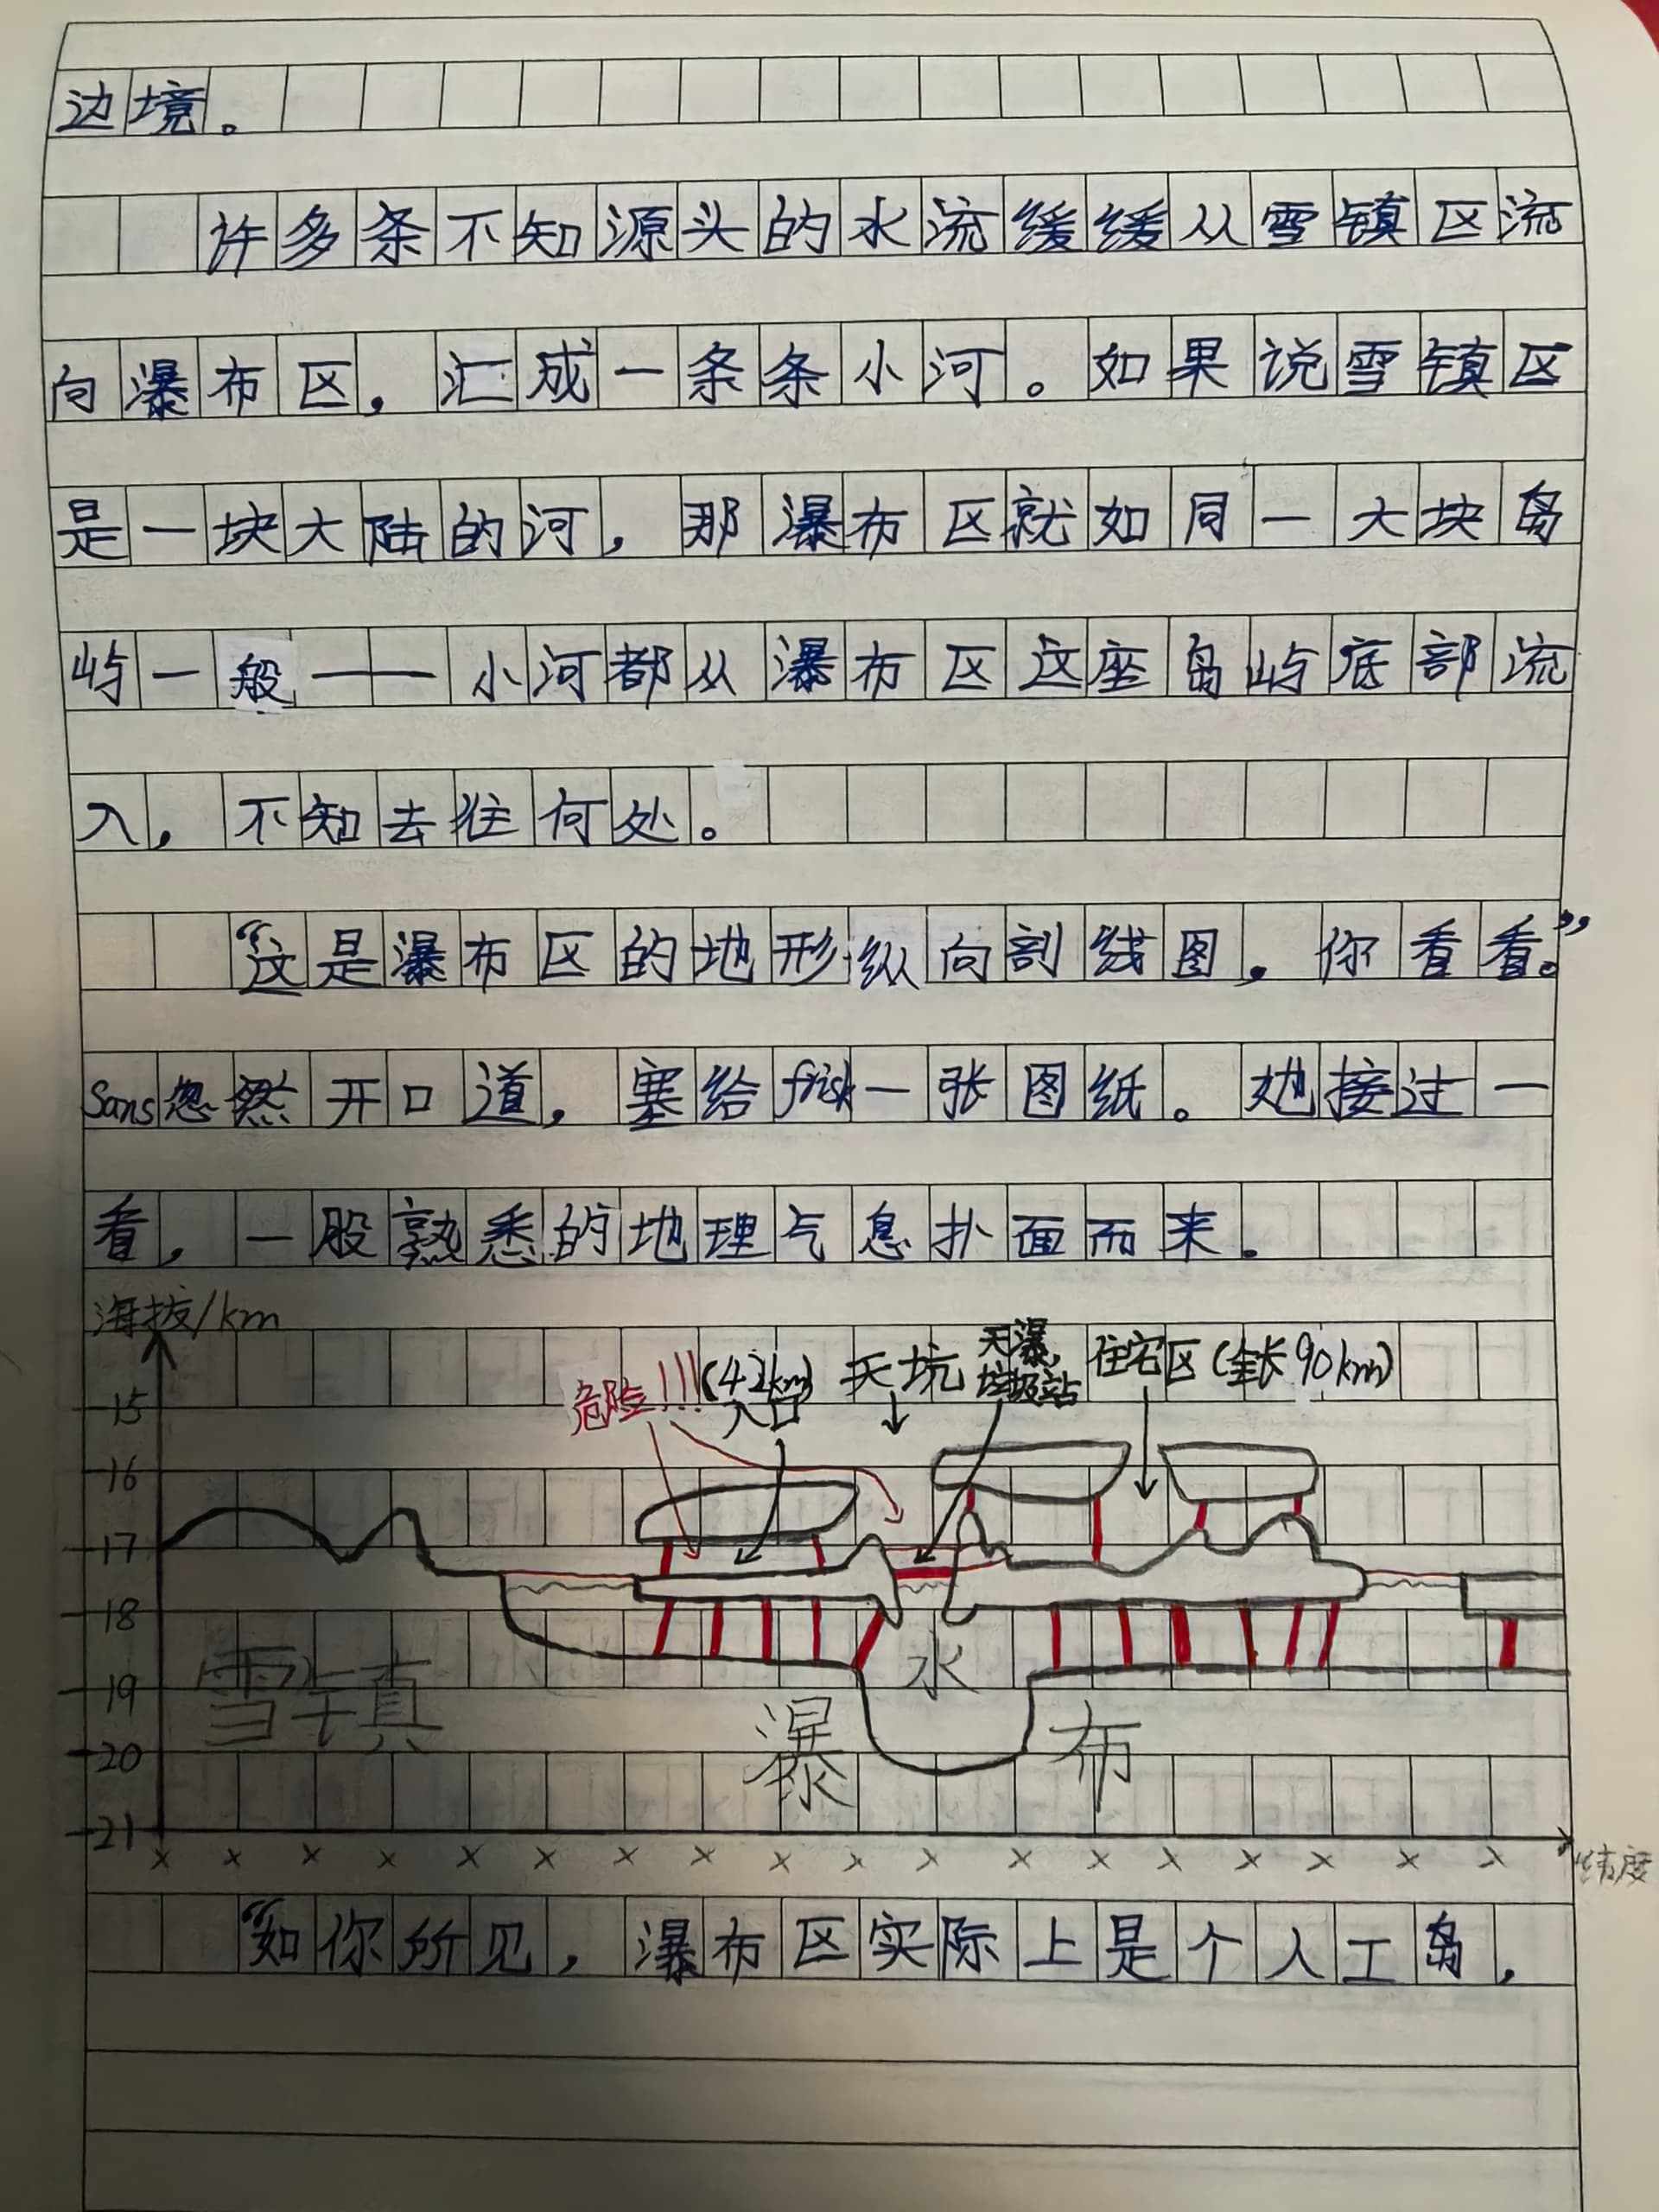 边境。
许多条不知源头的水流缓缓从雪镇区流
向瀑布区，汇成一条条小河。如果说雪镇区
是一块大陆的河，那瀑布区就如同一大块岛
屿一般——小河都从瀑布区这座岛屿底部流
入，不知去往何处。
“这是瀑布区的地形纵向剖线图，你看看。”
Sans忽然开口道，塞给frisk一张图纸。她接过一
看，一股熟悉的地理气息扑面而来。
海拔/km
危险!!!
(42km)
入口
天坑
天瀑,
垃圾站
住宅区(全长90km)
-15
-16
-17
-18
-19
-20
-21
雪镇
水
瀑 布
x x x x x x x x x x x x x x x x x x
纬度
“如你所见，瀑布区实际上是个人工岛，